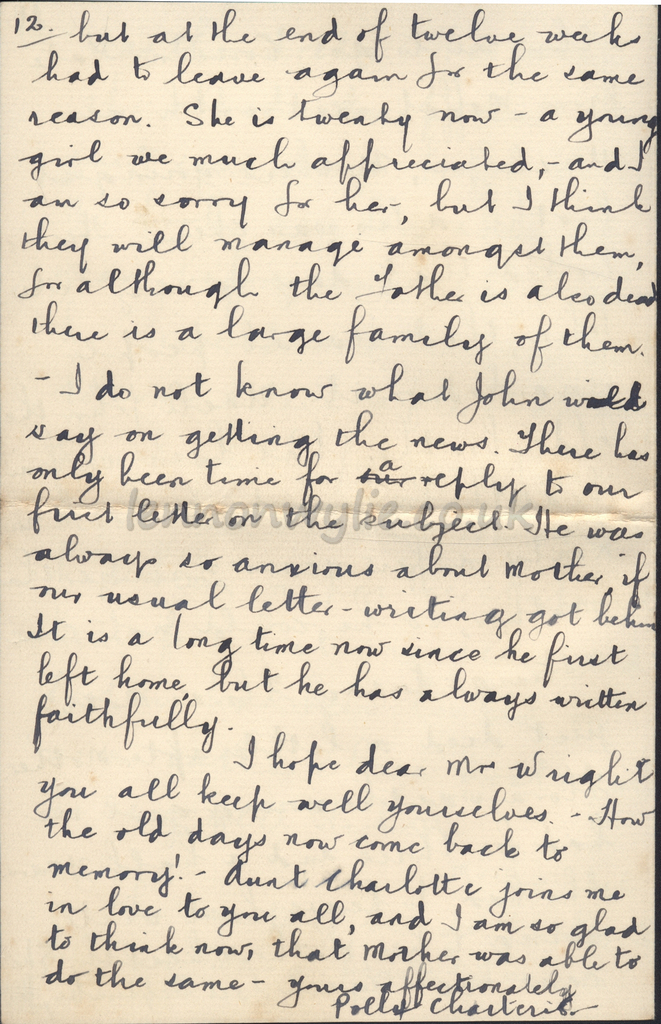 12. but at the end of twelve weeks
had to leave again for the same
reason. She is twenty now - a young
girl we much appreciated, - and I
am so sorry for her, but I think
they will manage amongst them,
for although the Father is also dead
there is a large family of them.
- I do not know what John will
say on getting the news. There has
only been time for our a reply to our
first letter on the subject. He was
always so anxious about Mother, if
our usual letter-writing got behin
It is a long time now since he first
left home, but he has always written
faithfully.
I hope dear Mr Wright
you all keep well yourselves. - How
the old days now come back to
memory! - Aunt Charlotte joins me
in love to you all, and I am so glad
to think now, that Mother was able to
do the same - yours affectionately
Polly Charteris
lennonwylie.co.uk